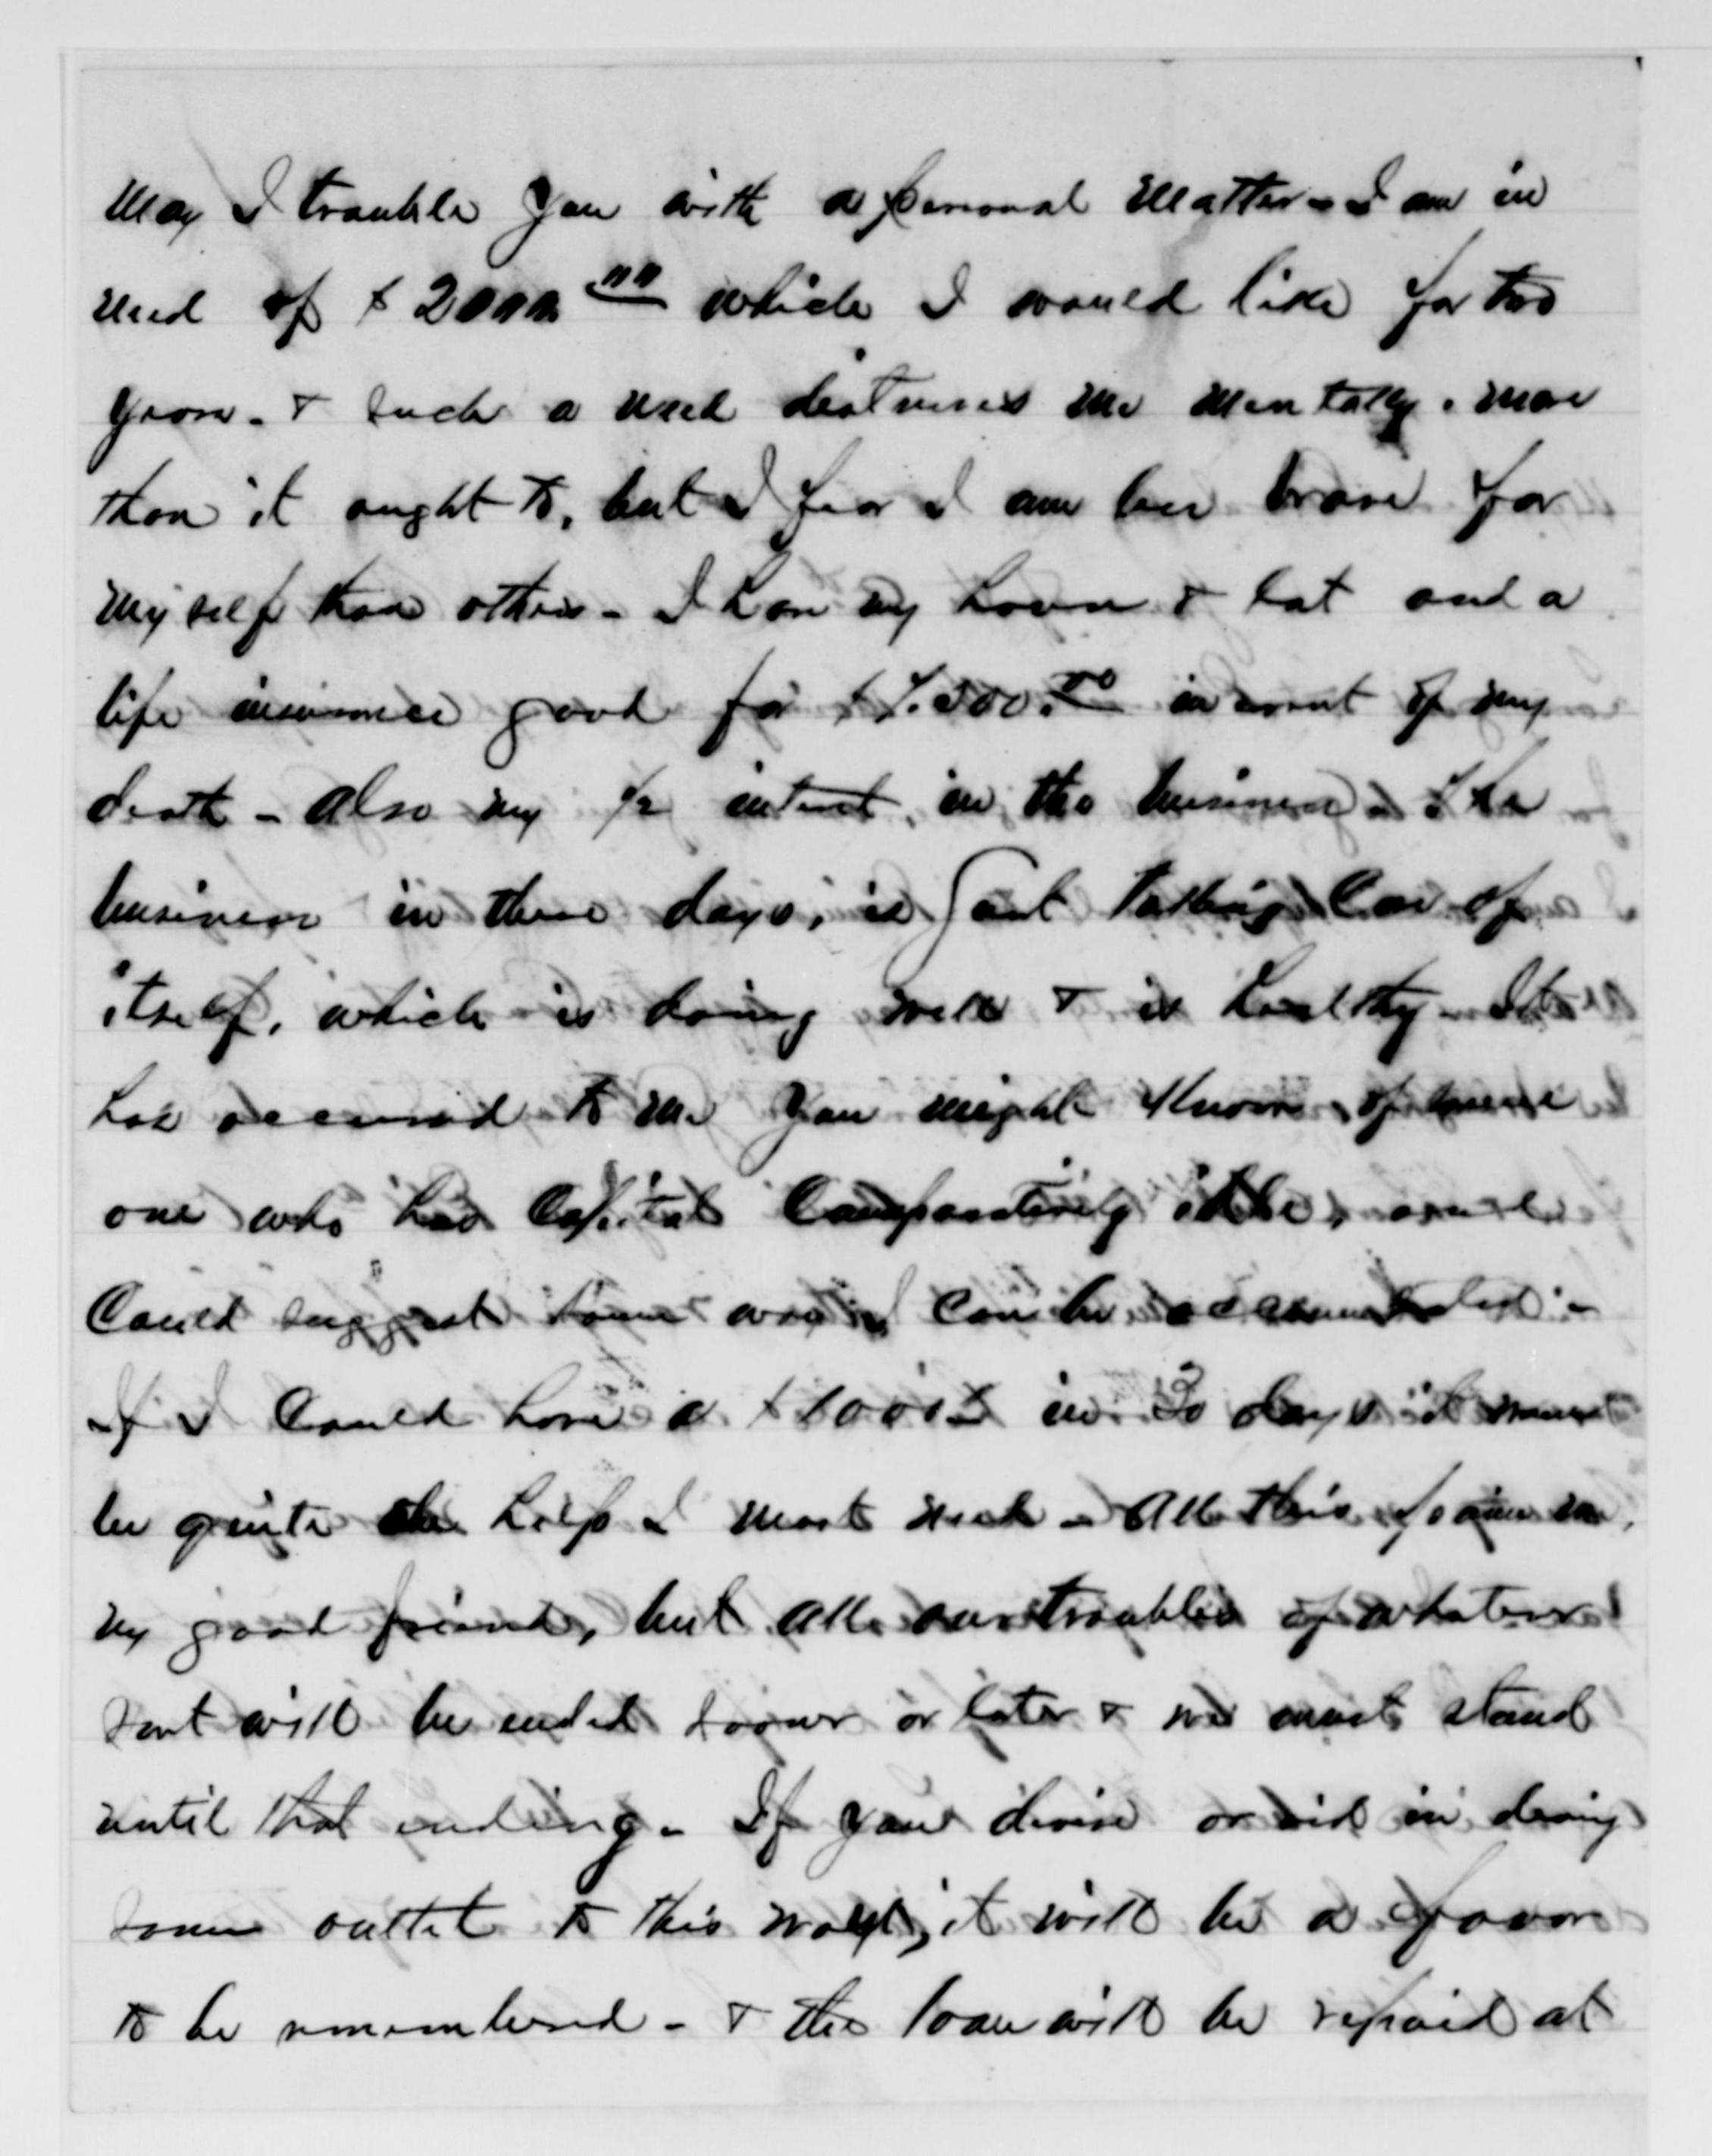 May I trouble you with a personal matter - I am in
need of $2000.00 which I would like for two
years - & such a need distresses me mentally - more
than it ought to, but I fear I am less brave for
myself than others - I have my house & lot and a
life insurance good for $ 7.500.00 in event of my
death - also my 1/2 interest in the business - The
business in these days, is just taking care of
itself, which is doing well & is healthy - It
has occurred to me you might know of some
one who has Capital Comparatively idle, or
Could suggest some way I can be accommodated -
If I Could have a $1000 in 30 days it would
be quite the help I most need - All this pains me,
my good friend, but all our troubles of whatever
sort will be ended sooner or later & we must stand
until that ending - If you devise or aid in devising
some outlet to this wolf, it will be a favor
to be remembered - & the loan will be repaid at